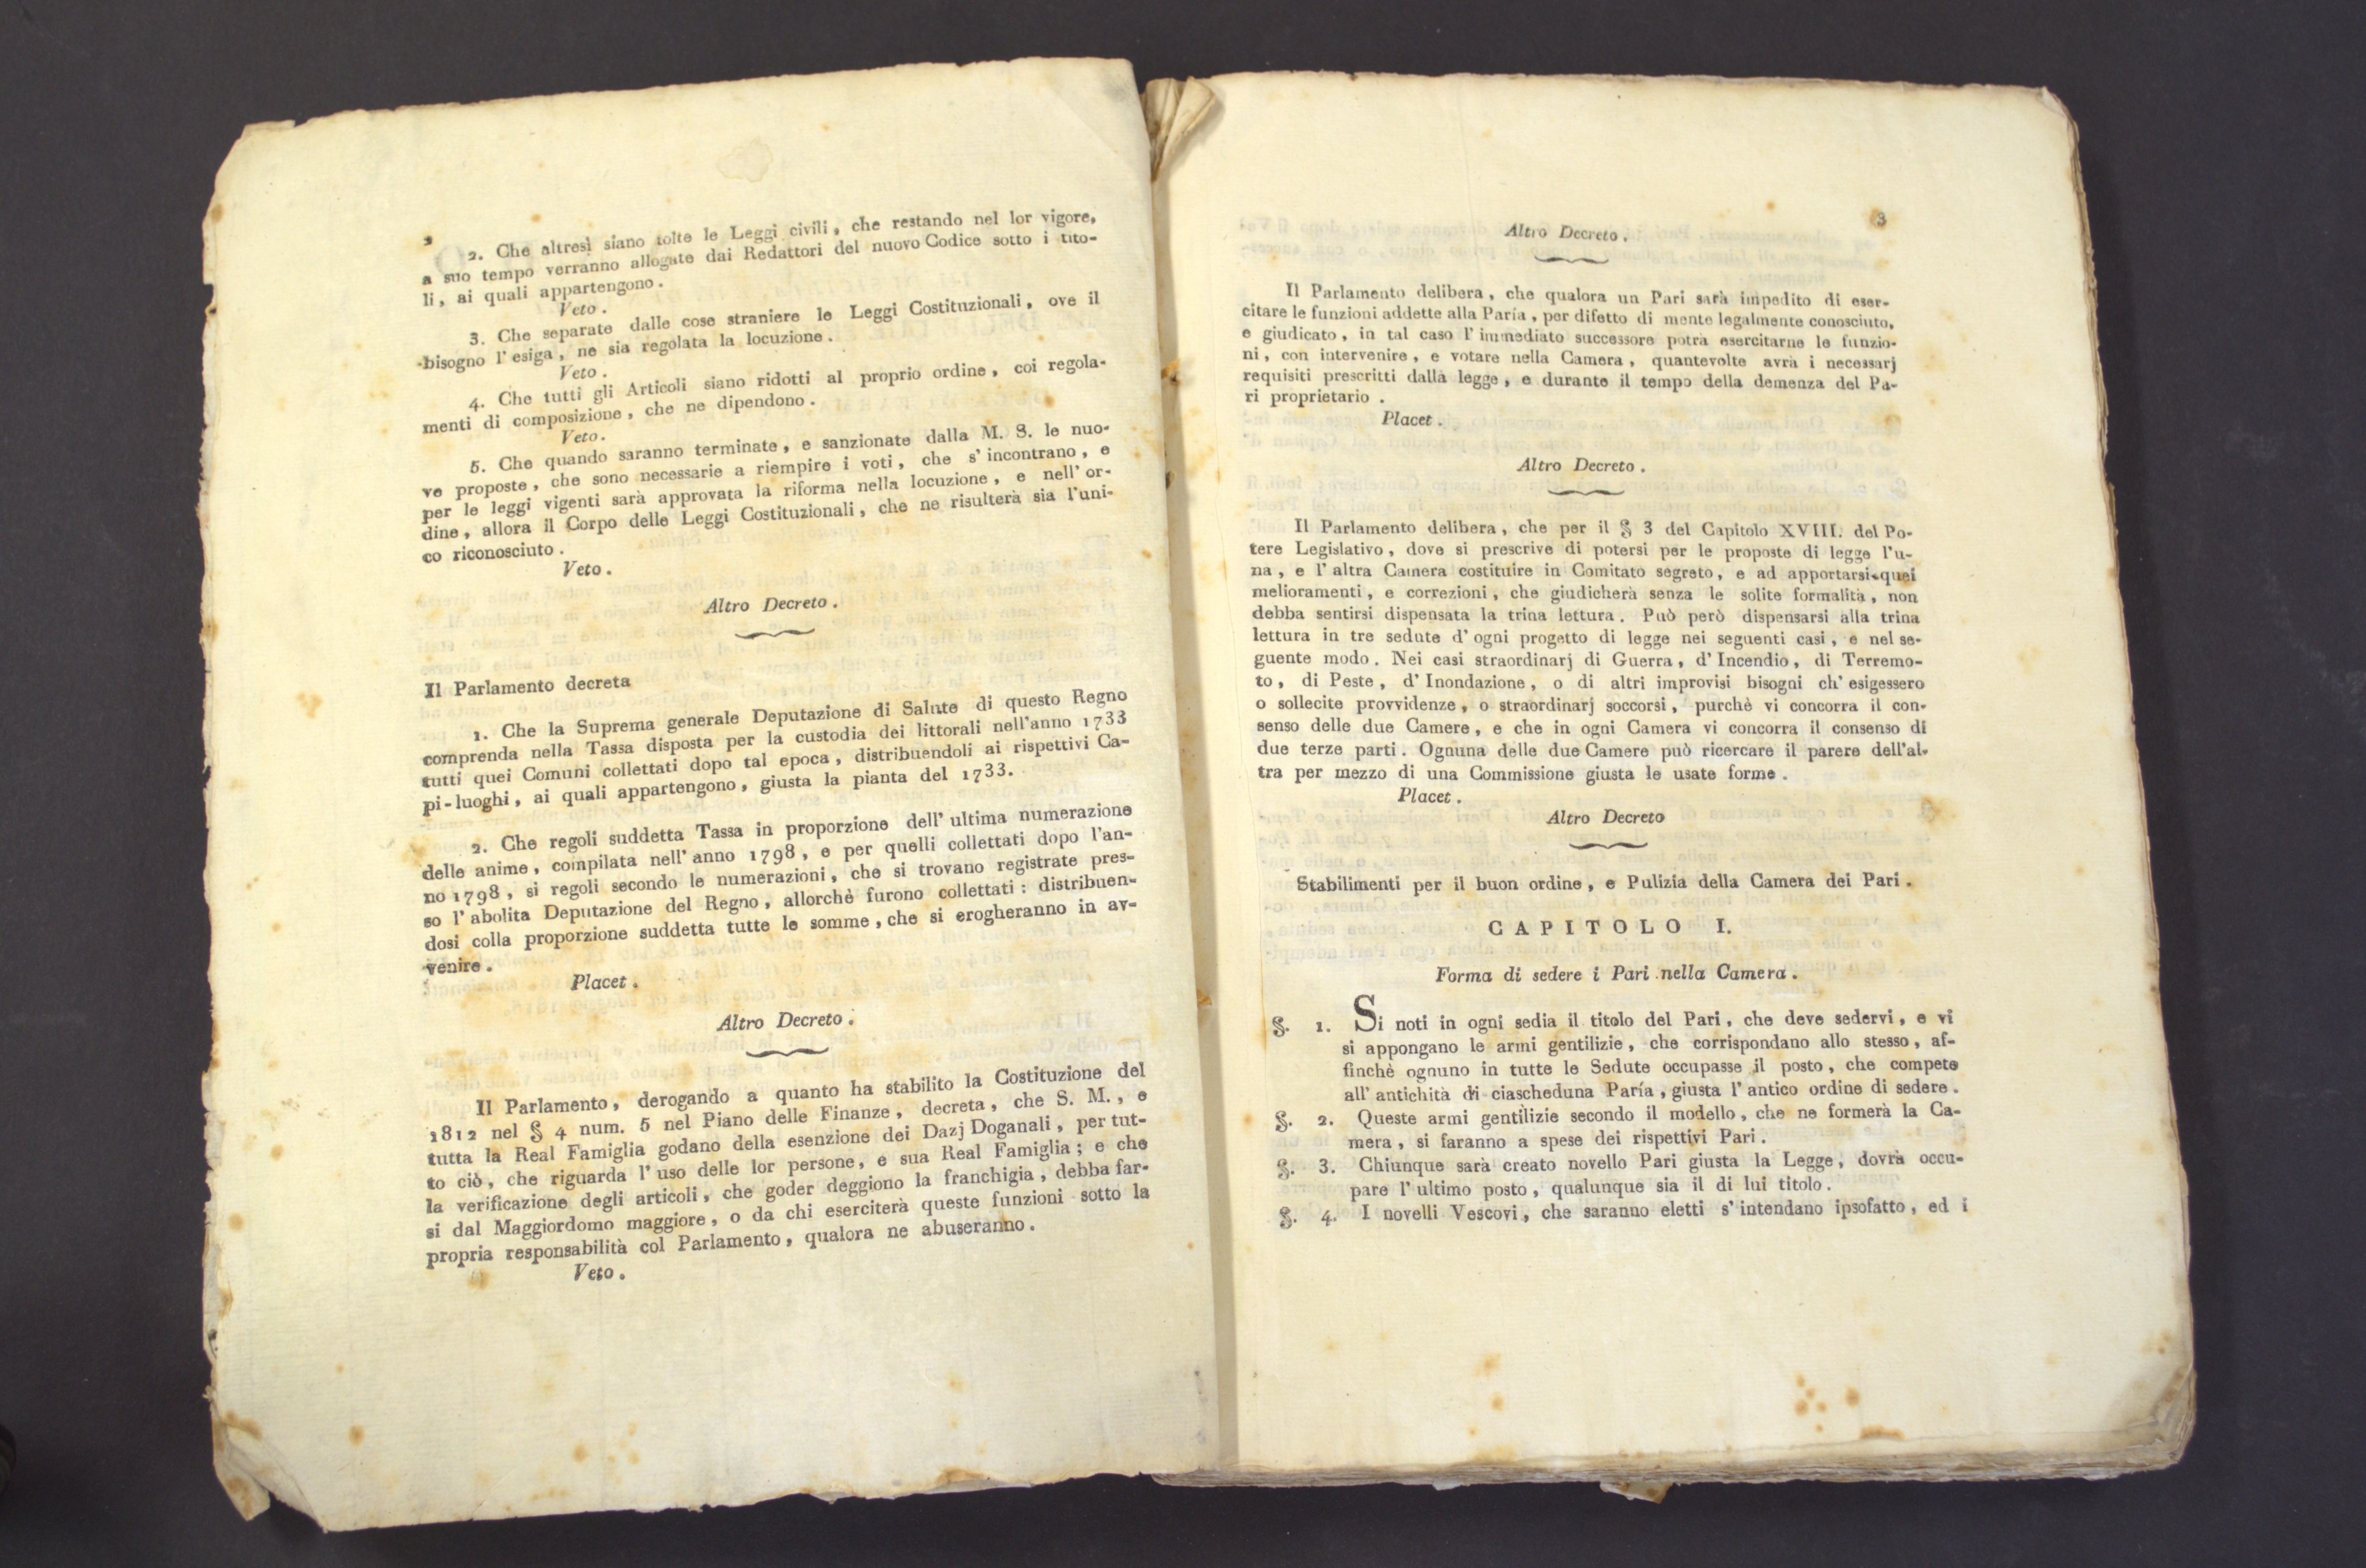 2
2. Che altresì siano tolte le Leggi civili, che restando nel lor vigore,
a suo tempo verranno allogate dai Redattori del nuovo Codice sotto i tito-
li, ai quali appartengono.
Veto.
3. Che separate dalle cose straniere le Leggi Costituzionali, ove il
bisogno l'esiga, ne sia regolata la locuzione.
Veto.
4. Che tutti gli Articoli siano ridotti al proprio ordine, coi regola-
menti di composizione, che ne dipendono.
Veto.
5. Che quando saranno terminate, e sanzionate dalla M. S. le nuo-
ve proposte, che sono necessarie a riempire i voti, che s'incontrano, e
per le leggi vigenti sarà approvata la riforma nella locuzione, e nell'or-
dine, allora il Corpo delle Leggi Costituzionali, che ne risulterà sia l'uni-
co riconosciuto.
Veto.
Altro Decreto.
Il Parlamento decreta
1. Che la Suprema generale Deputazione di Salute di questo Regno
comprenda nella Tassa disposta per la custodia dei littorali nell'anno 1733
tutti quei Comuni collettati dopo tal epoca, distribuendoli ai rispettivi Ca-
pi-luoghi, ai quali appartengono, giusta la pianta del 1733.
2. Che regoli suddetta Tassa in proporzione dell'ultima numerazione
delle anime, compilata nell'anno 1798, e per quelli collettati dopo l'an-
no 1798, si regoli secondo le numerazioni, che si trovano registrate pres-
so l'abolita Deputazione del Regno, allorchè furono collettati: distribuen-
dosi colla proporzione suddetta tutte le somme, che si erogheranno in av-
venire.
Placet.
Altro Decreto.
Il Parlamento, derogando a quanto ha stabilito la Costituzione del
1812 nel § 4 num. 5 nel Piano delle Finanze, decreta, che S. M., e
tutta la Real Famiglia godano della esenzione dei Dazj Doganali, per tut-
to ciò, che riguarda l'uso delle lor persone, e sua Real Famiglia; e che
la verificazione degli articoli, che goder deggiono la franchigia, debba far-
si dal Maggiordomo maggiore, o da chi eserciterà queste funzioni sotto la
propria responsabilità col Parlamento, qualora ne abuseranno.
Veto.
3
Altro Decreto.
Il Parlamento delibera, che qualora un Pari sarà impedito di eser-
citare le funzioni addette alla Paría, per difetto di mente legalmente conosciuto,
e giudicato, in tal caso l'immediato successore potrà esercitarne le funzio-
ni, con intervenire, e votare nella Camera, quantevolte avrà i necessarj
requisiti prescritti dalla legge, e durante il tempo della demenza del Pa-
ri proprietario.
Placet.
Altro Decreto.
Il Parlamento delibera, che per il § 3 del Capitolo XVIII. del Po-
tere Legislativo, dove si prescrive di potersi per le proposte di legge l'u-
na, e l'altra Camera costituire in Comitato segreto, e ad apportarsi quei
melioramenti, e correzioni, che giudicherà senza le solite formalità, non
debba sentirsi dispensata la trina lettura. Può però dispensarsi alla trina
lettura in tre sedute d'ogni progetto di legge nei seguenti casi, e nel se-
guente modo. Nei casi straordinarj di Guerra, d'Incendio, di Terremo-
to, di Peste, d'Inondazione, o di altri improvisi bisogni ch'esigessero
o sollecite provvidenze, o straordinarj soccorsi, purchè vi concorra il con-
senso delle due Camere, e che in ogni Camera vi concorra il consenso di
due terze parti. Ognuna delle due Camere può ricercare il parere dell'al-
tra per mezzo di una Commissione giusta le usate forme.
Placet.
Altro Decreto
Stabilimenti per il buon ordine, e Pulizia della Camera dei Pari.
CAPITOLO I.
Forma di sedere i Pari nella Camera.
§. 1. Si noti in ogni sedia il titolo del Pari, che deve sedervi, e vi
si appongano le armi gentilizie, che corrispondano allo stesso, af-
finchè ognuno in tutte le Sedute occupasse il posto, che compete
all'antichità di ciascheduna Paría, giusta l'antico ordine di sedere.
§. 2. Queste armi gentilizie secondo il modello, che ne formerà la Ca-
mera, si faranno a spese dei rispettivi Pari.
§. 3. Chiunque sarà creato novello Pari giusta la Legge, dovrà occu-
pare l'ultimo posto, qualunque sia il di lui titolo.
§. 4. I novelli Vescovi, che saranno eletti s'intendano ipsofatto, ed i